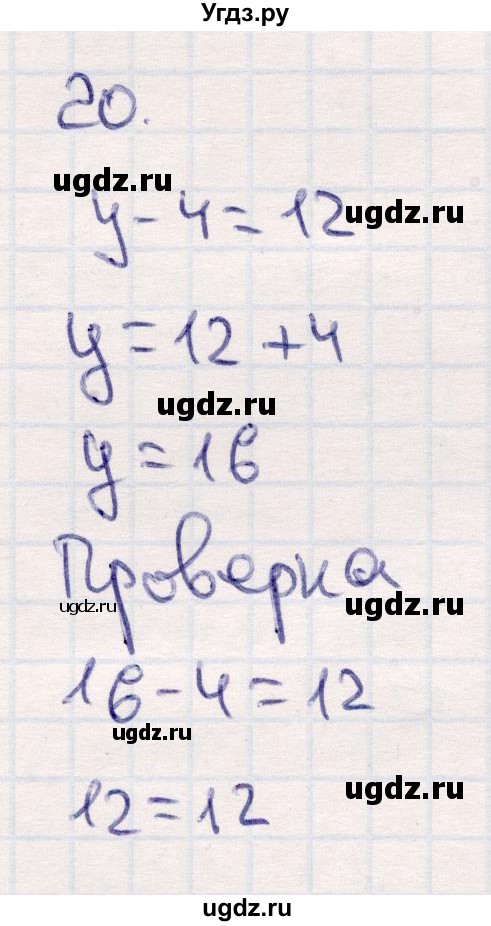 Угдз.ру
20.
ugdz.ru
y - 4 = 12
ugdz.ru
y = 12 + 4
ugdz.ru
y = 16
Проверка
ugdz.ru
ugdz.ru
16 - 4 = 12
ugdz.ru
12 = 12
ugdz.ru
ugdz.ru